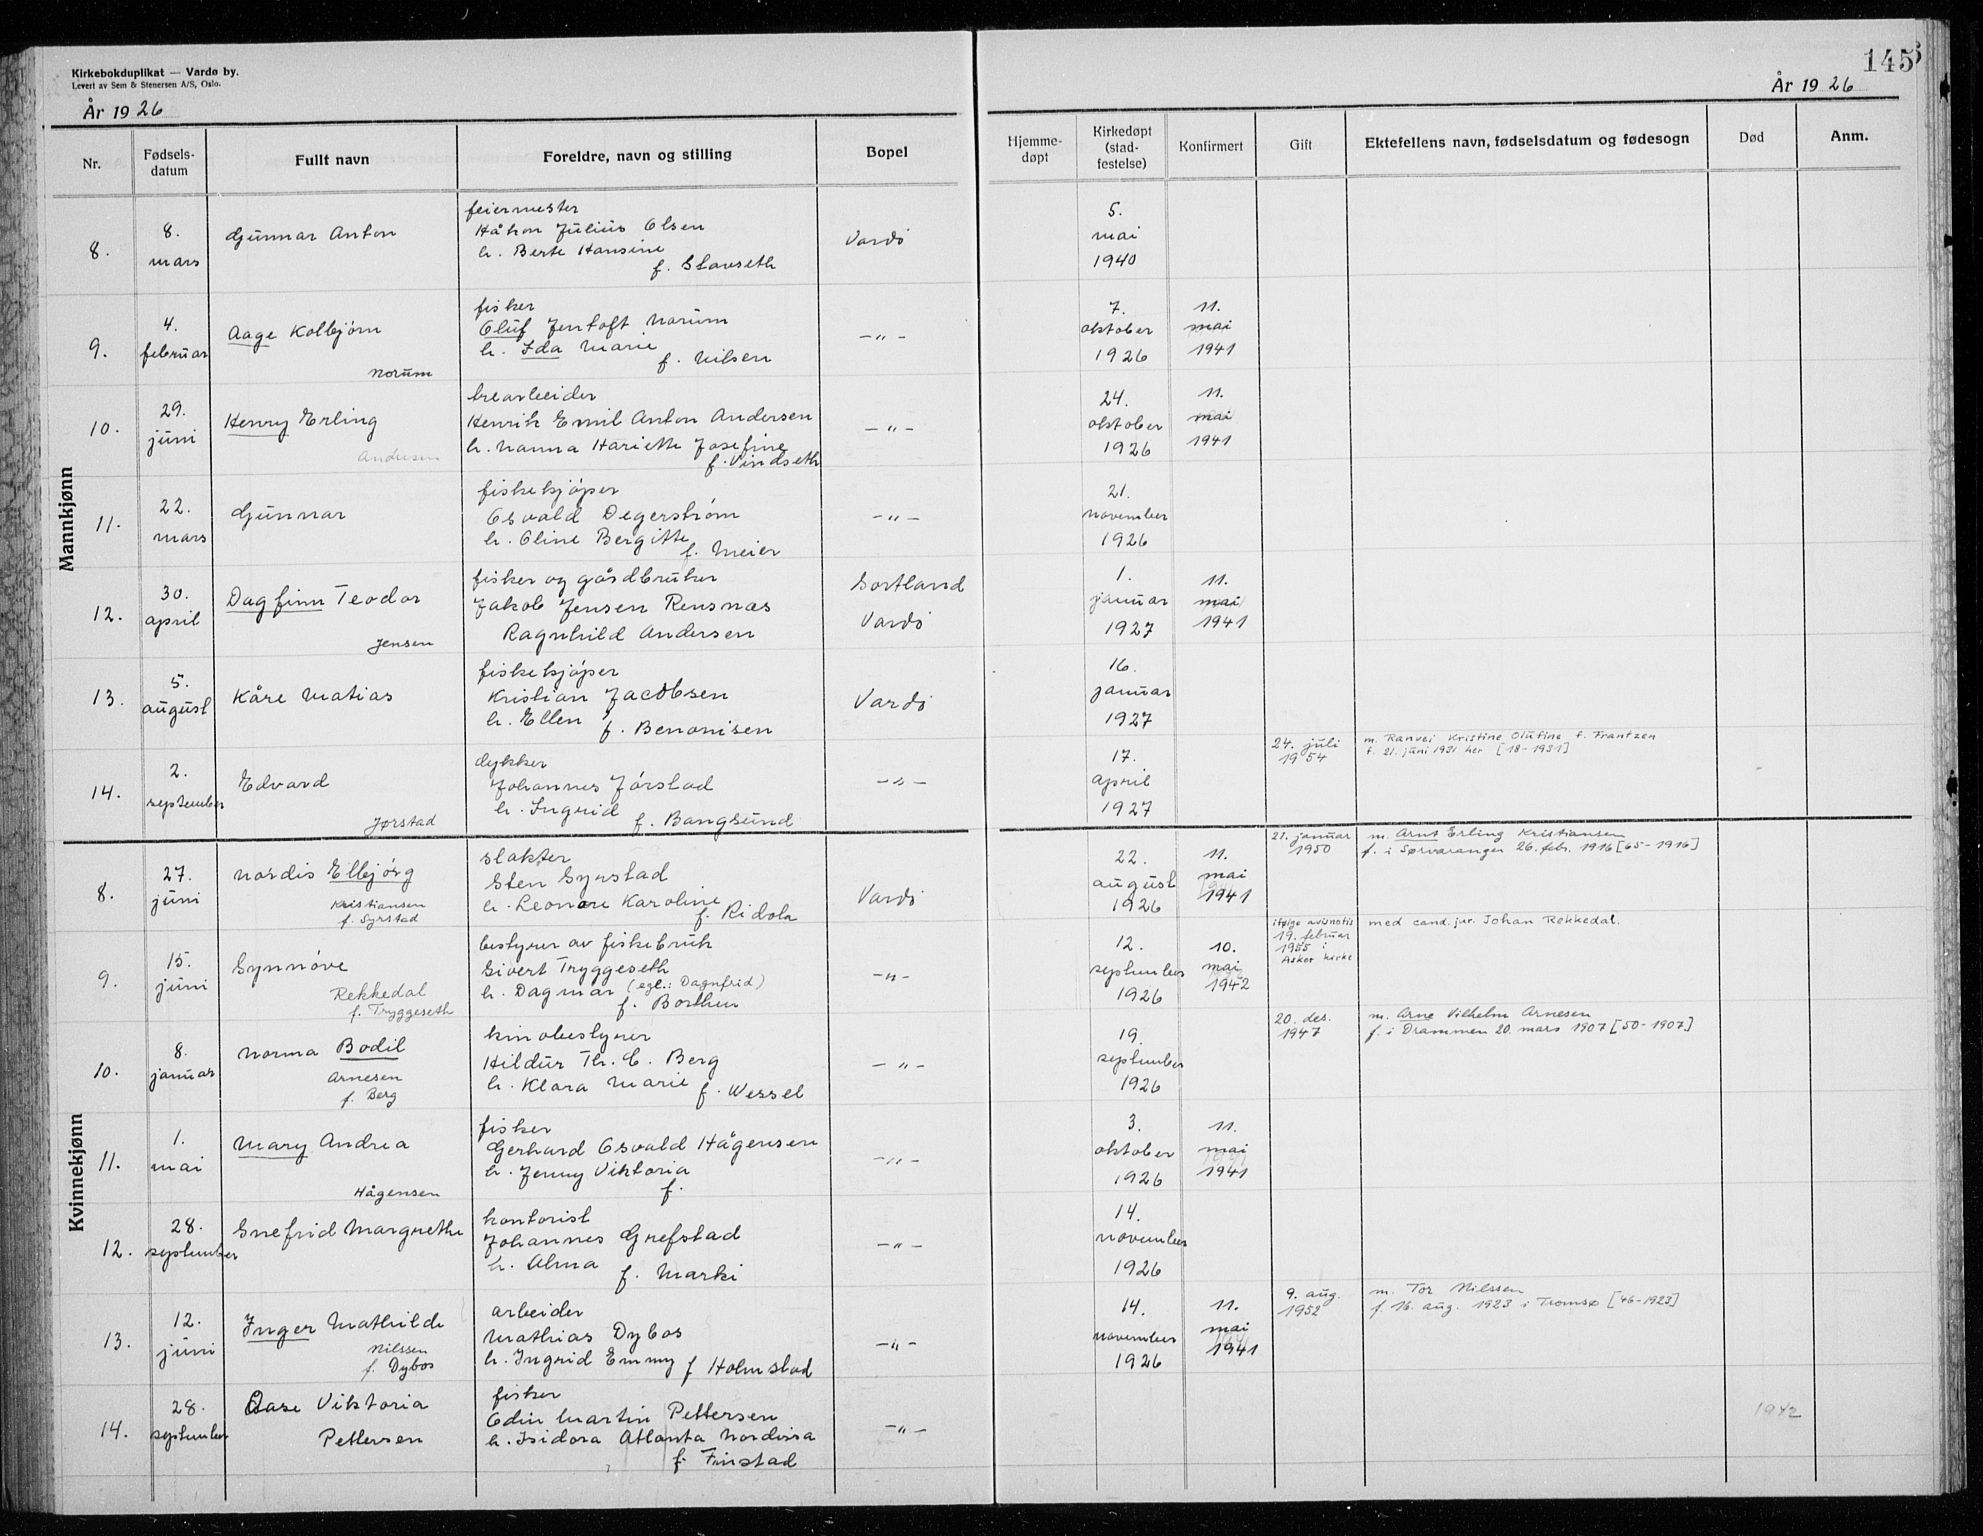 Kirkebokduplikat — Vardø by.
Levert av Sem & Stenersen A/S, Oslo.
År 1926
145
År 1926
Nr.
Fødsels-
datum
Fullt navn
Foreldre, navn og stilling
Bopel
Hjemme-
døpt
Kirkedøpt
(stad-
festelse)
Konfirmert
Gift
Ektefellens navn, fødselsdatum og fødesogn
Død
Anm.
Mannkjønn
8.
8.
mars
Gunnar Anton
feiermester
Håkon Julius Olsen
h. Berte Hansine
f. Slavseth
Vardö
5.
mai
1940
9.
4.
februar
Aage Kolbjörn
Norum
fisker
Oluf Jentoft Norum
h. Ida Marie
f. Nilsen
—„—
7.
oktober
1926
11.
mai
1941
10.
29.
juni
Henry Erling
Andersen
trearbeider
Henrik Emil Anton Andersen
h. Nanna Hariette Josefine
f. Vindseth
—„—
24.
oktober
1926
11.
mai
1941
11.
22.
mars
Gunnar
fiskekjöper
Osvald Degerström
h. Oline Bergitte
f. Meier
—„—
21.
november
1926
12.
30.
april
Dagfinn Teodor
Jensen
fisker og gårdbruker
Jakob Jensen Rensnas
Ragnhild Andersen
Sortland
Vardö
1.
januar
1927
11.
mai
1941
13.
5.
august
Kåre Matias
fiskekjöper
Kristian Jacobsen
h. Ellen
f. Benonisen
Vardö
16.
januar
1927
14.
2.
september
Edvard
Jørstad
dykker
Johannes Jörstad
h. Ingrid
f. Bangsund
—„—
17.
april
1927
24. juli
1954
m. Ranvei Kristine Olufine f. Frantzen
f. 21. juni 1931 her [18-1931]
Kvinnekjønn
8.
27.
juni
Nordis Elbjörg
Kristiansen
f. Syrstad
slakter
Sten Syrstad
h. Leonore Karoline
f. Ridola
Vardö
22.
august
1926
11.
mai
1941
21. januar
1950
m. Arnt Erling Kristiansen
f. i Sørvaranger 26. febr. 1916 [65-1916]
9.
15.
juni
Synnöve
Rekkedal
f. Tryggeseth
bestyrer av fiskebruk
Sivert Tryggeseth
h. Dagmar (egl.: Dagnfrid)
f. Borthen
—„—
12.
september
1926
10.
mai
1942
ifølge avisnotis
19. februar
1955 i
Asker kirke
med cand. jur. Johan Rekkedal.
10.
8.
januar
Norma Bodil
Arnesen
f. Berg
kinobestyrer
Hildur Th. C. Berg
h. Klara Marie
f. Wessel
—„—
19.
september
1926
20. des.
1947
m. Arne Vilhelm Arnesen
f. i Drammen 20. mars 1907 [50-1907]
11.
1.
mai
Mary Andrea
Hågensen
fisker
Gerhard Osvald Hågensen
h. Jenny Viktoria
f.
—„—
3.
oktober
1926
11.
mai
1941
12.
28.
september
Snefrid Margrethe
kontorist
Johannes Grefstad
h. Alma
f. Marki
—„—
14.
november
1926
13.
12.
juni
Inger Mathilde
Nilssen
f. Dybos
arbeider
Mathias Dybos
h. Ingrid Emmy f Holmstad
—„—
14.
november
1926
11.
mai
1941
9. aug.
1952
m. Tor Nilssen
f. 16. aug. 1923 i Tromsø [46-1923]
14.
28.
september
Aase Viktoria
Pettersen
fisker
Odin Martin Pettersen
h. Isidora Atlanta Nordissa
f. Finstad
—„—
1942